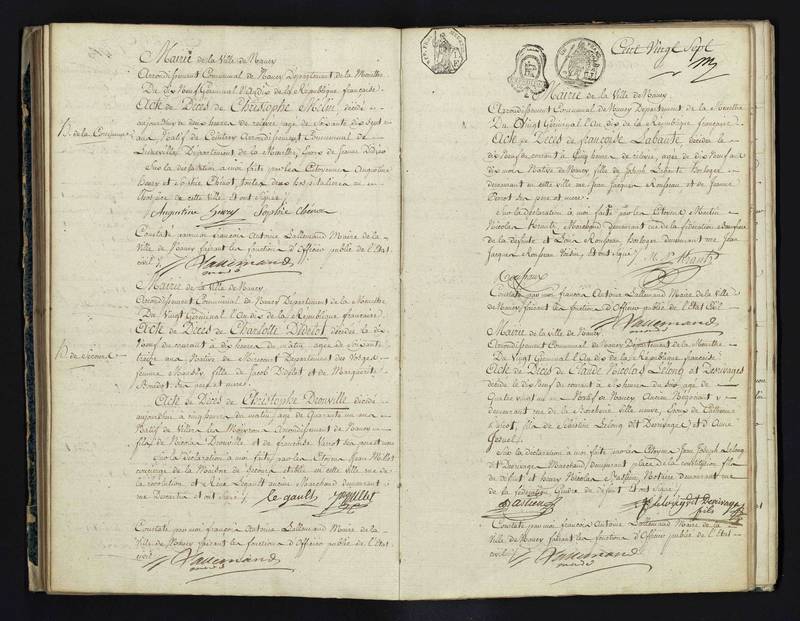 Mairie de la Ville de Nancy
Arrondissement Communal de Nancy Département de la Meurthe
Du dix Neuf Germinal l'an dix de la République française
Acte de Décès de Christophe décédé
aujourdhuy à deux heures de relevée agé de Soixante dix Sept
ans Natif de Arrondissement Communal de
Luneville Département de la Meurthe, Epoux de
Sur la déclaration à moi faite par les Citoyennes Augustine
Henry et Sophie toutes deux en
l'hospice de cette Ville. Et ont Signé
Augustine henry Sophie
Constaté par moi françois Antoine Lallemand Maire de la
Ville de Nancy faisant les fonctions d'Officier public de l'Etat
civil Lallemand
maire
Mairie de la Ville de Nancy
Arrondissement Communal de Nancy Département de la Meurthe
Du Vingt Germinal l'an dix de la République française
D. de Secours
Acte de Décès de Charlotte Didelot décédée le dix
Neuf du courant à dix heures du matin, agée de Soixante
treize ans Native de Mirecourt Département des Vosges
femme fille de Jacob Didelot et de Marguerite
ses père et mère.
Acte de Décès de Christophe Dronville décédé
aujourdhui à cinq heures du matin, agé de Quarante un ans
Natif de Villers les Moivron Arrondissement de Nancy
fils de Nicolas Dronville et de françoise ses père et mère
Sur la déclaration à moi faite par les Citoyens Jean Millot
concierge de la Maison de Secours établie en cette Ville rue de
la révolution, et Legault Marchand demeurant
rue et ont Signé le gault Millot
Constaté par moi françois Antoine Lallemand Maire de la
Ville de Nancy faisant les fonctions d'Officier public de l'Etat
civil Lallemand
maire
Cent Vingt Sept
Mairie de la Ville de Nancy
Arrondissement Communal de Nancy Département de la Meurthe
Du Vingt Germinal l'an dix de la République française
Acte de Décès de françoise Labaute, décédée le
dix Neuf du courant à cinq heures de relevée, agée de dix Neuf ans
dix mois Native de Nancy, fille de Joseph Labaute horloger
demeurant en cette ville rue Jean Jacques Rousseau et de Jeanne
ses père et mère.
Sur la déclaration à moi faite par les Citoyens Martin
Nicolas Marchand demeurant rue de la fédération
de la défunte et Louis Rousseau, horloger demeurant rue Jean
Jacques Rousseau Voisin, et ont signé
Constaté par moi françois Antoine Lallemand Maire de la Ville
de Nancy faisant les fonctions d'Officier public de l'Etat Civil
Lallemand
maire
Mairie de la Ville de Nancy
Arrondissement Communal de Nancy Département de la Meurthe
Du Vingt Germinal l'an dix de la République française
Acte de Décès de Claude Nicolas Lelong dit Desrivages
décédé le dix Neuf du courant à six heures du soir, agé de
Quatre vingt un ans Natif de Nancy Ancien Négociant
demeurant rue de la ville neuve, Epoux de Catherine
fils de Sébastien Lelong dit Desrivages et d'Anne
Sur la déclaration à moi faite par les Citoyens Jean Joseph Lelong
dit Desrivages Marchand, demeurant place de la constitution, fils
du défunt et henry Nicolas Notaire demeurant rue
de la fédération Gendre du défunt et ont Signé
Lelong dit Desrivages
fils
Constaté par moi françois Antoine Lallemand Maire de la
Ville de Nancy faisant les fonctions d'Officier public de l'Etat
civil Lallemand
maire